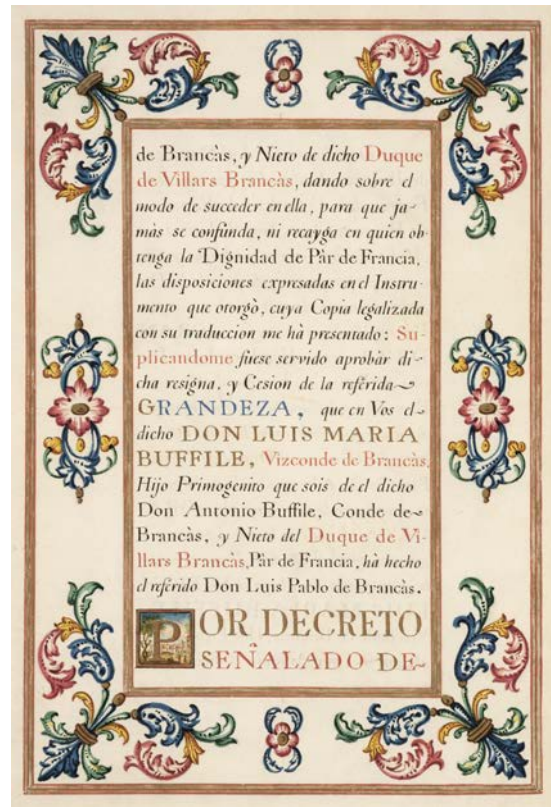 de Brancàs, y Nieto de dicho Duque
de Villars Brancàs, dando sobre el
modo de succeder en ella, para que ja-
màs se confunda, ni recayga en quien ob-
tenga la Dignidad de Pàr de Francia,
las disposiciones expresadas en el Instru-
mento que otorgò, cuya Copia legalizada
con su traduccion me hà presentado: Su-
plicandome fuese servido aprobàr di-
cha resigna, y Cesion de la referida~
GRANDEZA, que en Vos el~
dicho DON LUIS MARIA
BUFFILE, Vizconde de Brancàs,
Hijo Primogenito que sois de el dicho
Don Antonio Buffile, Conde de~
Brancàs, y Nieto del Duque de Vi-
llars Brancàs, Pàr de Francia, hà hecho
el referido Don Luis Pablo de Brancàs.
POR DECRETO
SEÑALADO DE~